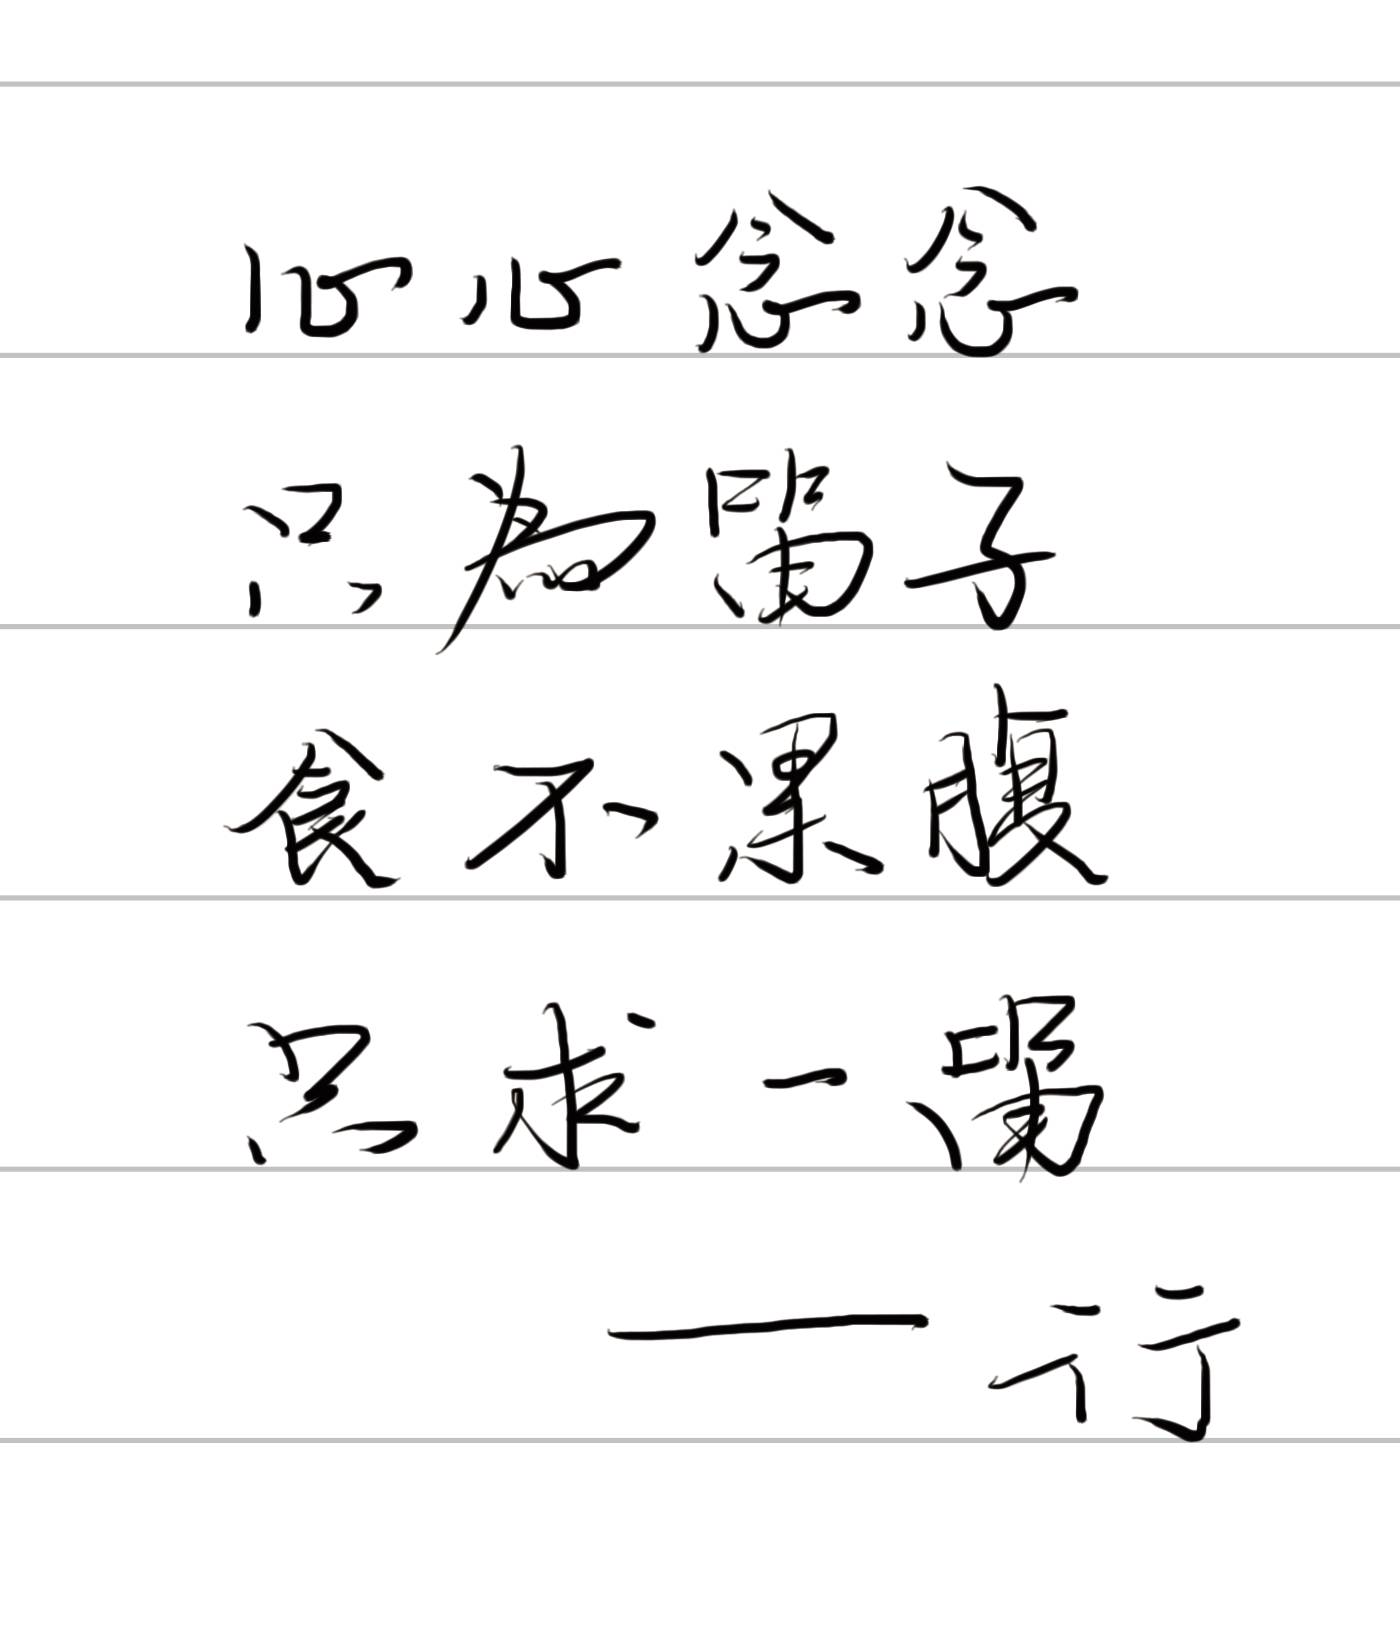 心心念念
只為單子
食不果腹
只求一單
——行